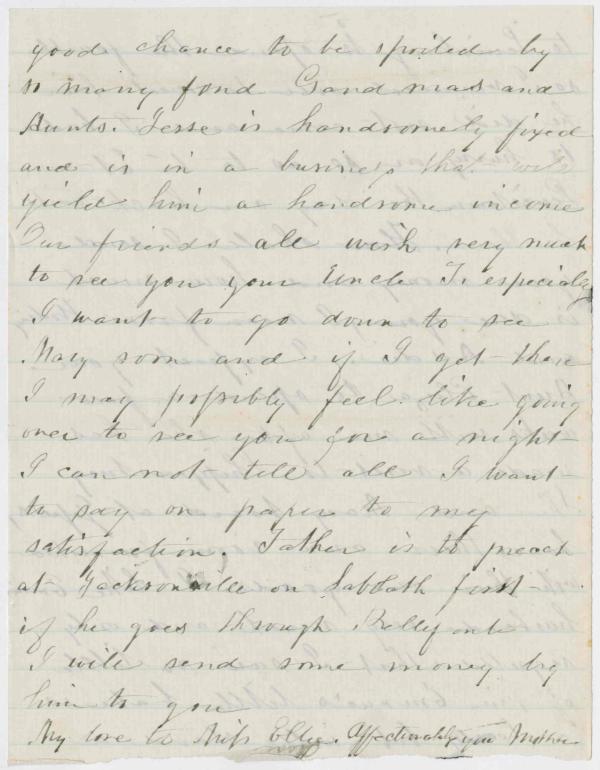 good chance to be spoiled by
so many fond Gand mas and
Aunts. Jesse is handsomely fixed
and is in a business that will
yield him a handsome income
Our friends all wish very much
to see you your Uncle T. especially
I want to go down to see
Mary soon and if I get there
I may possibly feel like going
over to see you for a night
I can not tell all I want
to say on paper to my
satisfaction. Father is to preach
at Jacksonville on Sabbath first
if he goes through Bellefonte
I will send some money by
him to you
My love to Miss Ellie. Affectionately your Mother